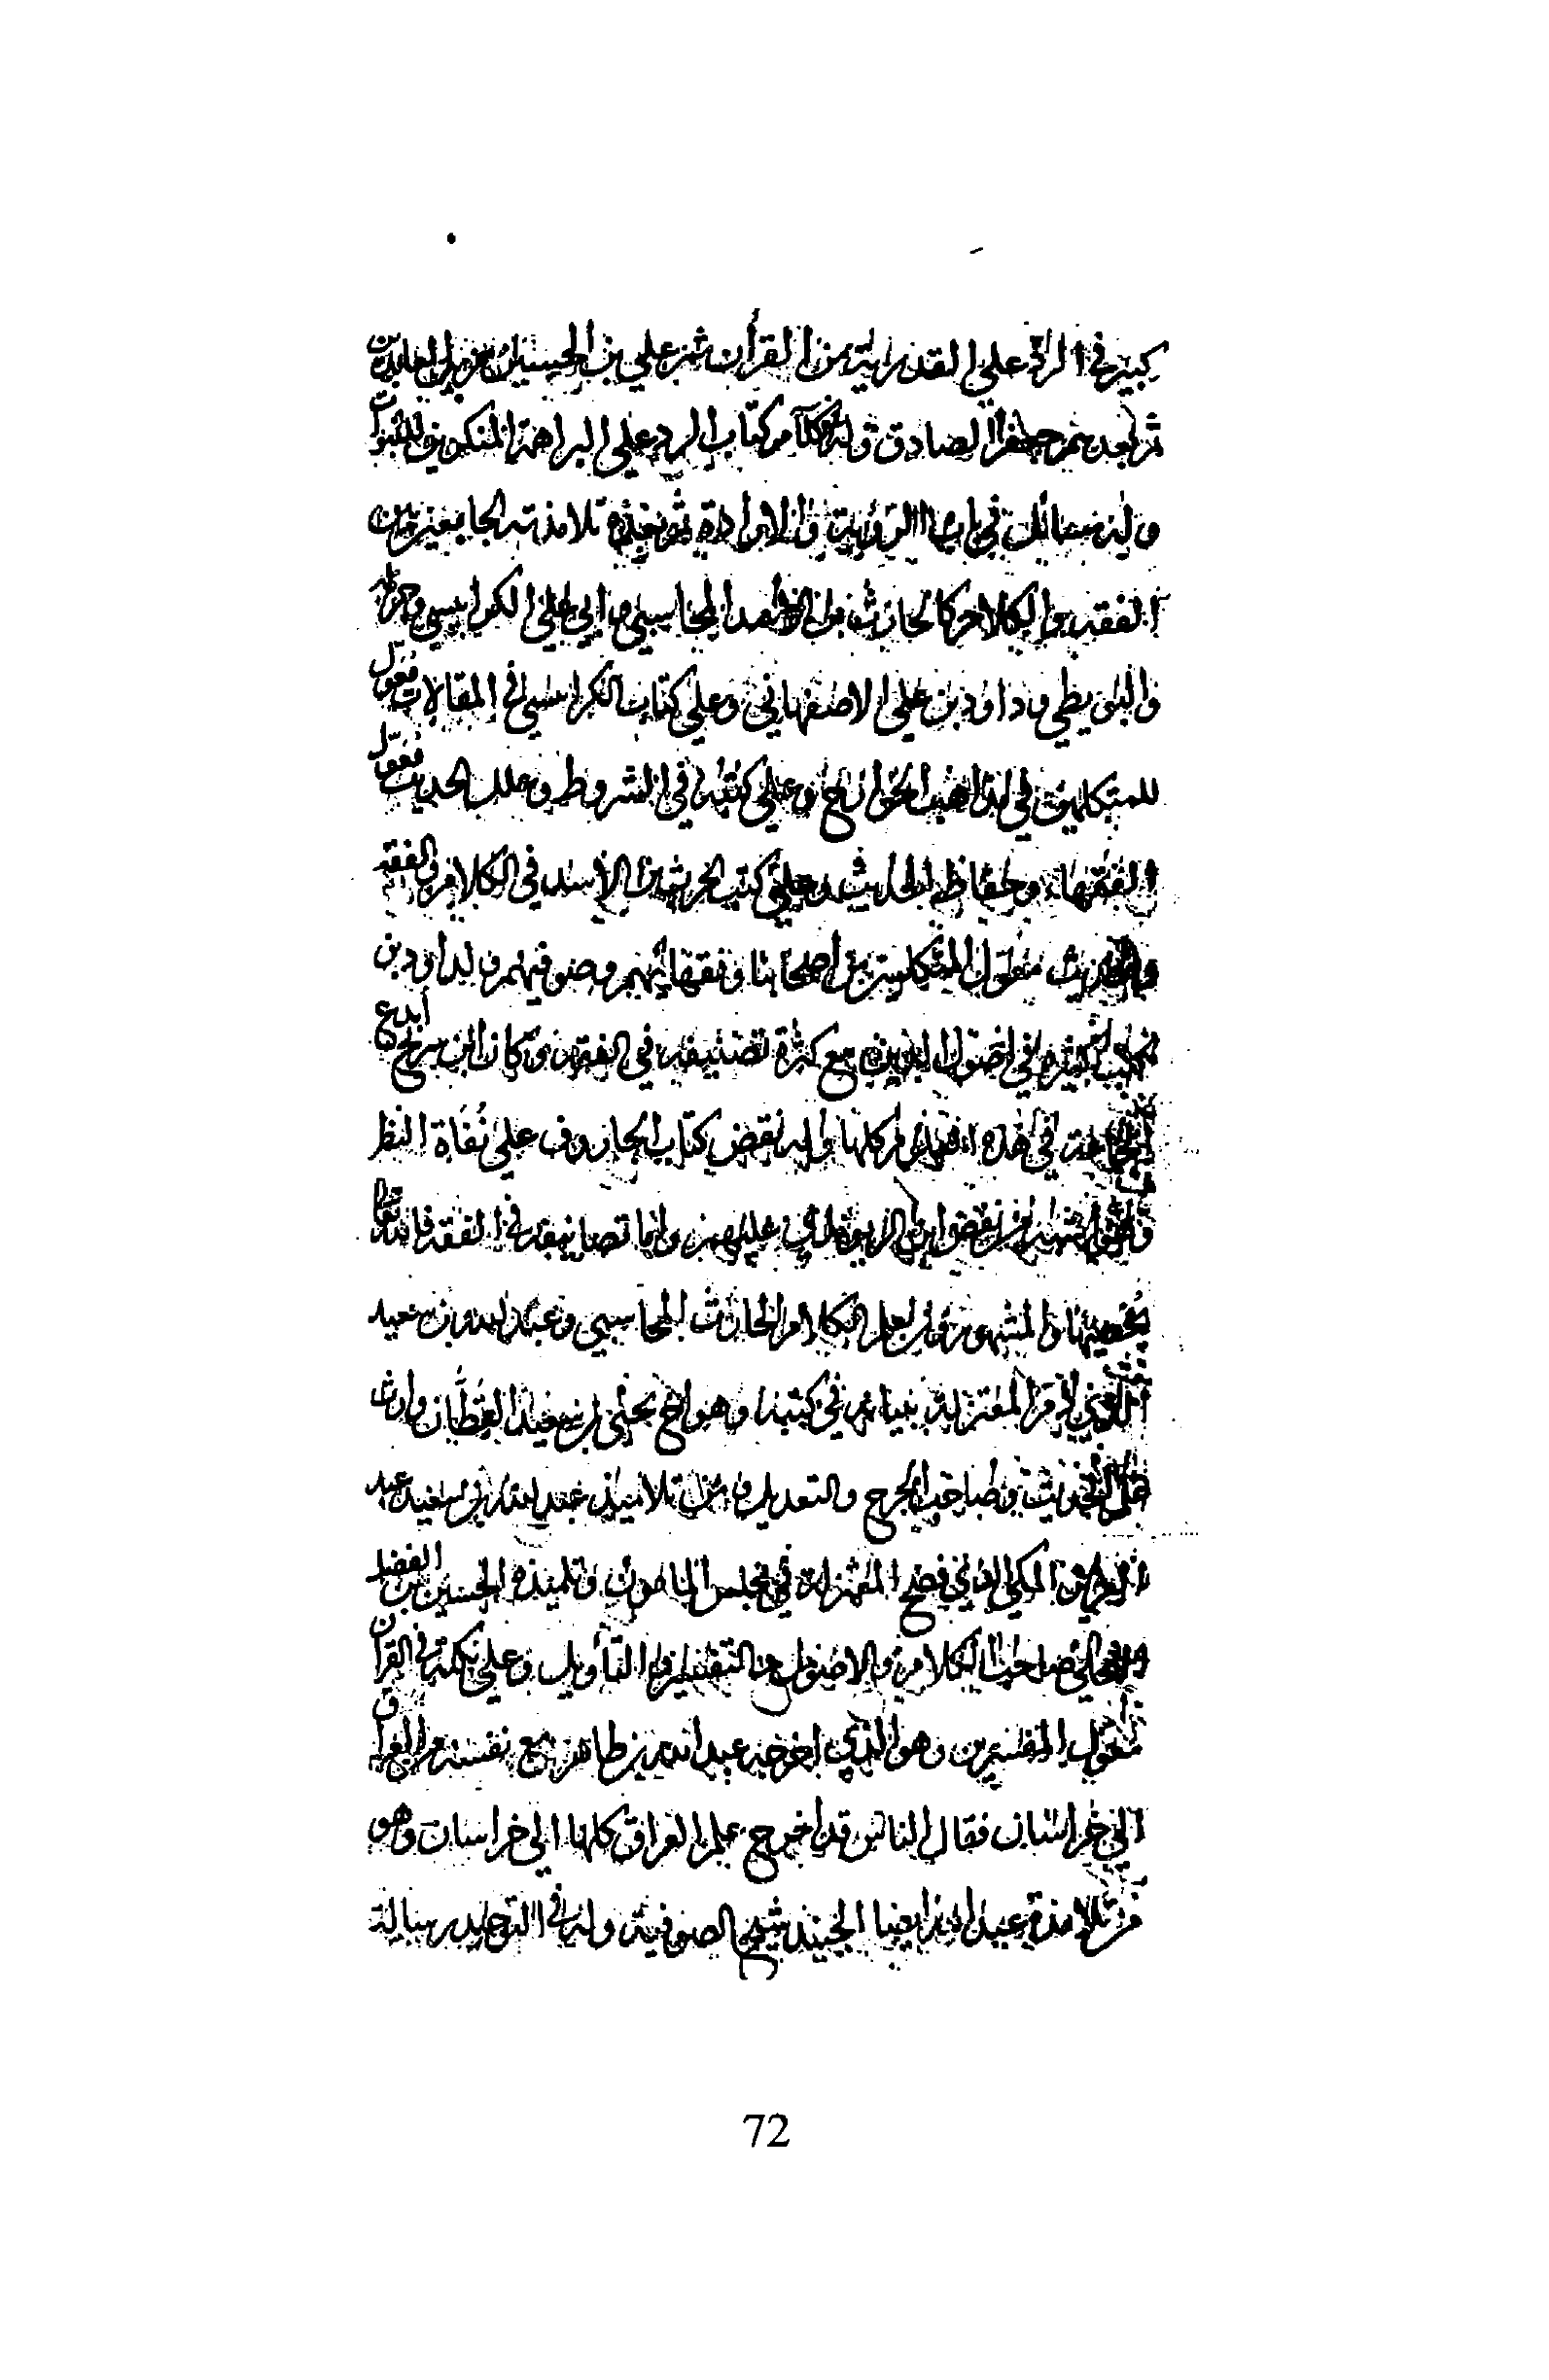 كبيرة في الرد على القدرية من القرآن ثم علي بن الحسين زين العابدين
ثم بعدهم جعفر الصادق وله كلام كتاب الرد على البراهمة المنكرين للنبوات
وله مسائل في باب الرؤية والارادة ثم بعده تلامذته الجامعين بين
الفقه والكلام كالحارث بن اسد المحاسبي وابي علي الكرابيسي وحرملة
والبويطي وداود بن علي الاصفهاني وعلى كتاب الكرابيسي في المقالات معول
للمتكلمين في مذاهب الخوارج وعلى كتبه في الشروط وعلل الحديث معول
الفقهاء وحفاظ الحديث وعلى كتب الحرث بن الأسد في الكلام والفقه
والحديث معول المتكلمين من أصحابنا وفقهائهم وصوفيهم ولداود بن
كتب كثيرة في اصول الدين مع كثرة تصنيفه في الفقه وكان ابن سريج أبدع
الجماعة في هذه العلوم كلها وله نقض كتاب الجاروف على نفاة النظر
وهو اشهر من نقض ابن الريوندي عليهم واما تصانيفه في الفقه فالله
يحصيها والمشهورون بعلم الكلام الحارث المحاسبي وعبد الله بن سعيد
الذي دمر المعتزلة ببيانه في كتبه وهو اخ يحيى بن سعيد القطان وارث
علم الحديث وصاحب الجرح والتعديل ومن تلاميذ عبد الله بن سعيد عبد
العزيز المكي الذي فضح المعتزلة في مجلس المامون وتلميذه الحسين بن الفضل
البجلي صاحب الكلام والاصول والتفسير والتأويل وعلى نكته في القرآن
معول المفسرين وهو الذي اخرجه عبد الله بن طاهر مع نفسه من العراق
الى خراسان فقال الناس قد أخرج علم العراق كلها الى خراسان وهو
من تلامذة عبد الله ايضا الجنيد شيخ الصوفية وله في التوحيد رسالة
72